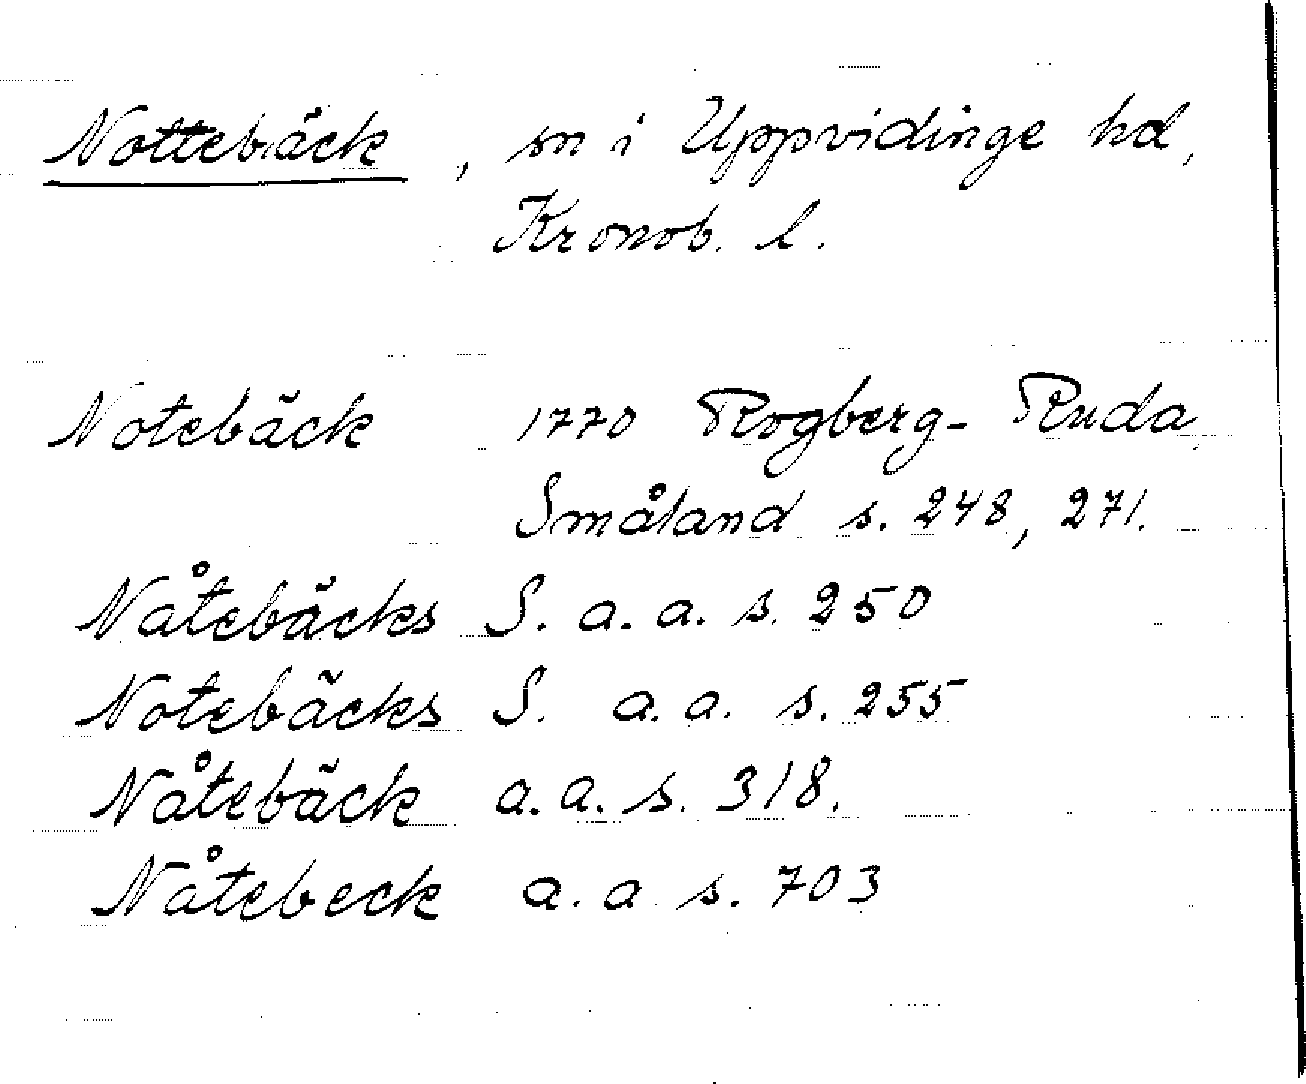 Nottebäck, sn i Uppvidinge hd,
Kronob. l.
Notebäck 1770 Rogberg-Ruda
Småland s. 248, 271.
Nåtebäcks S. a. a. s. 250
Notebäcks S. a. a. s. 255
Nåtebäck a. a. s. 318.
Nåtebeck a. a s. 703